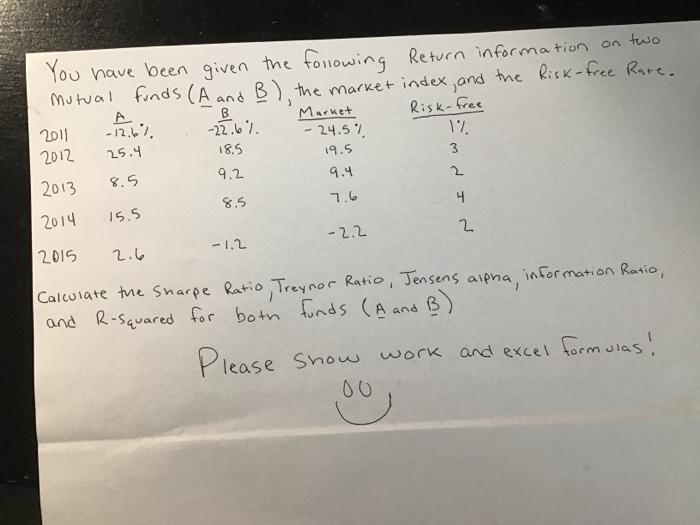 You have been given the following Return information on two
Mutual funds (A and B), the market index, and the Risk-free Rate.
A B Market Risk-free
2011 -12.6%. -22.6%. -24.5% 1%
2012 25.4 18.5 19.5 3
2013 8.5 9.2 9.4 2
2014 15.5 8.5 7.6 4
2015 2.6 -1.2 -2.2 2
Calculate the Sharpe Ratio, Treynor Ratio, Jensens alpha, information Ratio,
and R-Squared for both funds (A and B)
Please show work and excel formulas!